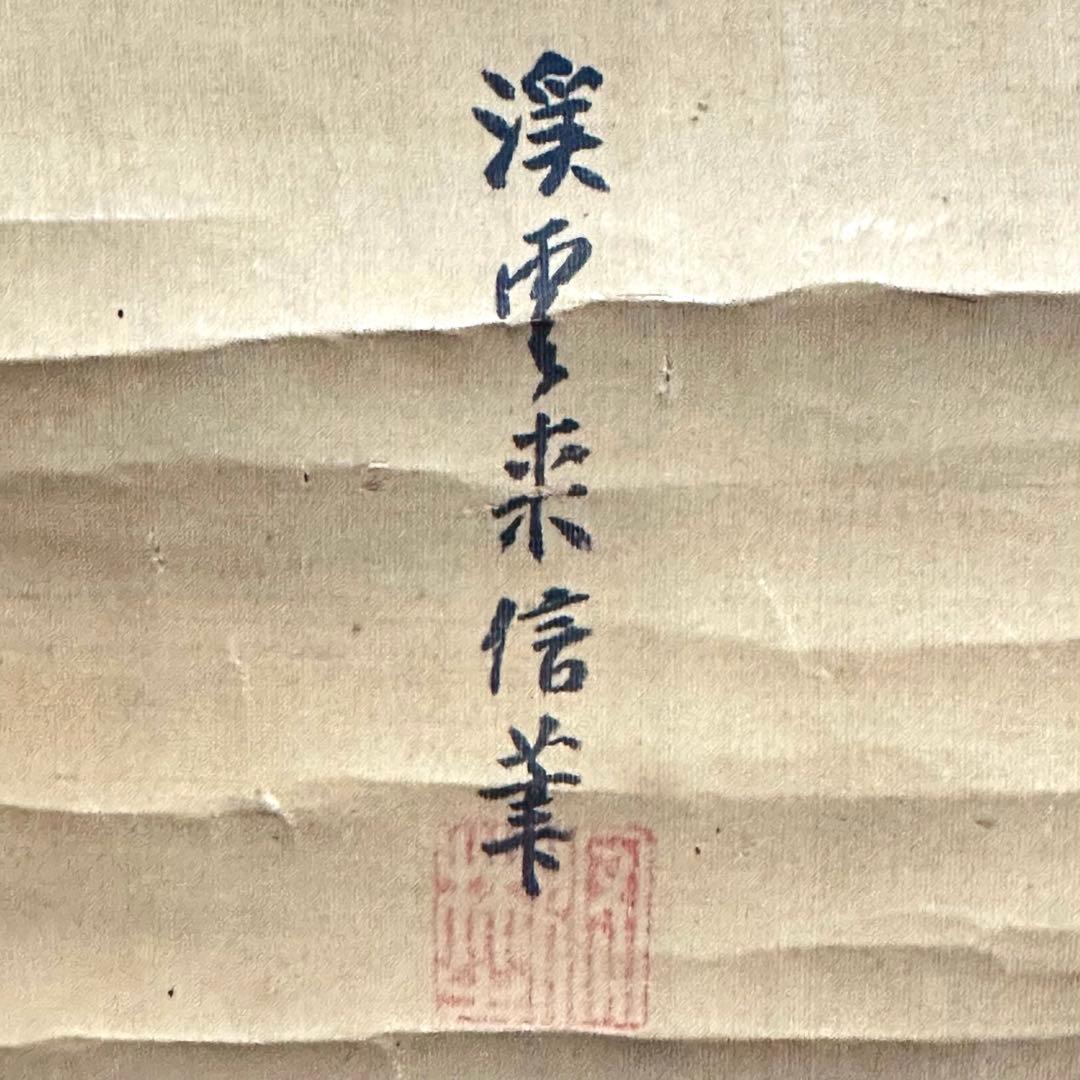 渓雲来信筆